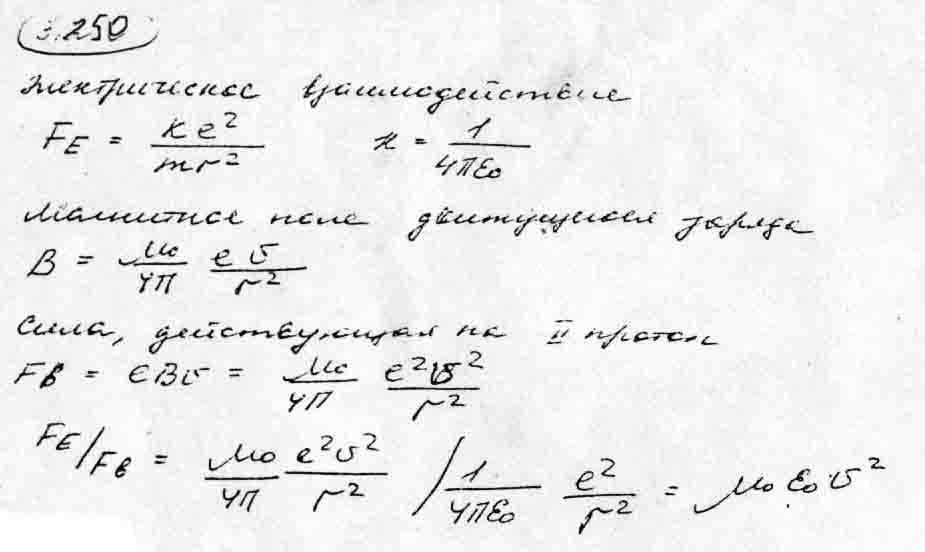 3.250
Электрическое взаимодействие
FE = Ke²/mr² к = 1/4πε₀
Магнитное поле движущегося заряда
B = μ₀/4π eυ/r²
Сила, действующая на II протон
FB = eBυ = μ₀/4π e²υ²/r²
FE/FB = μ₀/4π e²υ²/r² / 1/4πε₀ e²/r² = μ₀ε₀υ²